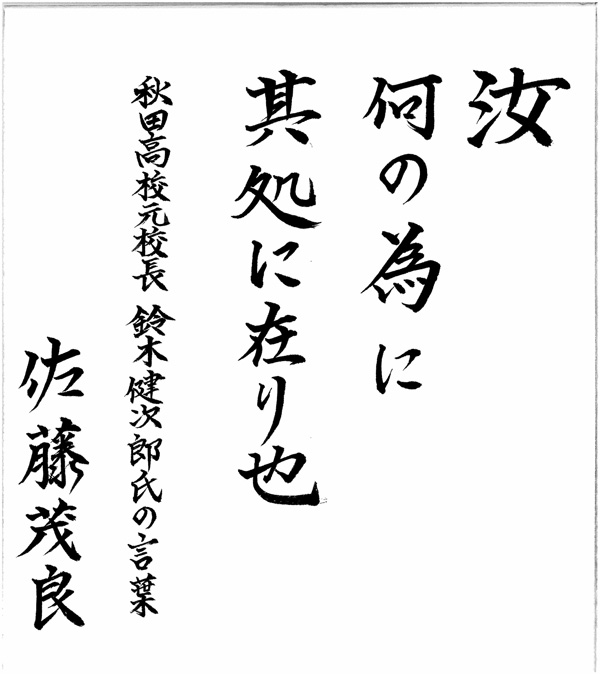 汝
何の為に
其処に在り也
秋田高校元校長 鈴木健次郎氏の言葉
佐藤茂良